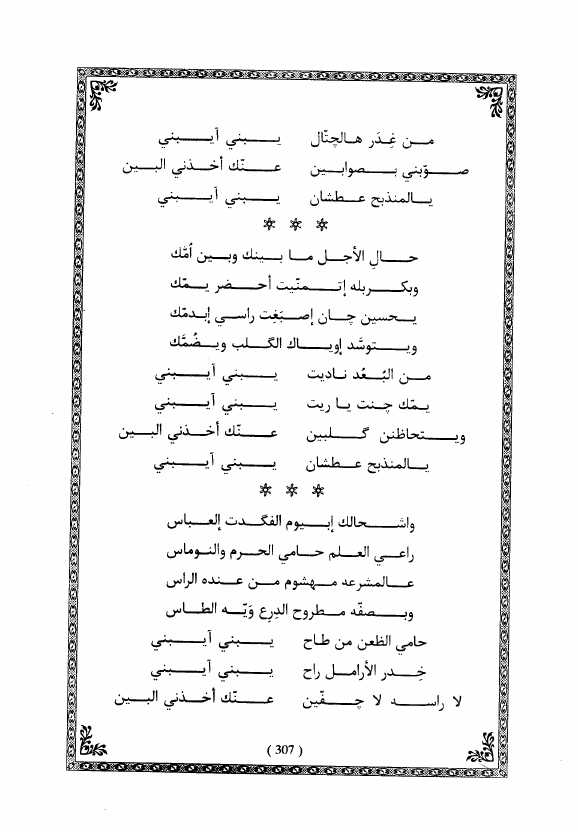 مـن غِـدَر هـالچتّال يـبني آيـبني
صـوّبني بـصوابـين عـنّك أخـذني البـين
يـالمنذبح عـطشان يـبني آيـبني
* * *
حـالِ الأجـل مـا بـينك وبـين اُمّك
وبكـربله إتـمنّيت أحـضر يـمّك
يـحسين چـان إصـبَغِت راسـي إبدمّك
ويـتوسَّد إويـاك الگـلب ويـضُمَّك
مـن البُـعُد نـاديت يـبني آيـبني
يـمّك چـنت يـا ريت يـبني آيـبني
ويـتحاظنن گـلبين عـنّك أخـذني البـين
يـالمنذبح عـطشان يـبني آيـبني
* * *
واشـحالك إبـيوم الفگـدت إلعـباس
راعـي العـلم حـامي الحـرم والنـوماس
عـالمشرعه مـهشوم مـن عـنده الراس
وبـصفّه مـطروح الدِرِع وَيّـه الطـاس
حامي الظعن من طـاح يـبني آيـبني
خِـدر الأرامـل راح يـبني آيـبني
لا راسـه لا چـفّين عـنّك أخـذني البـين
( 307 )